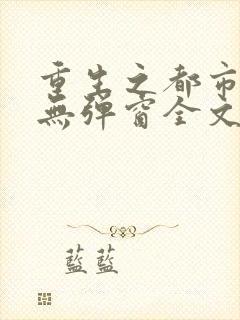 重生之都市
無彈窗全文
藍藍